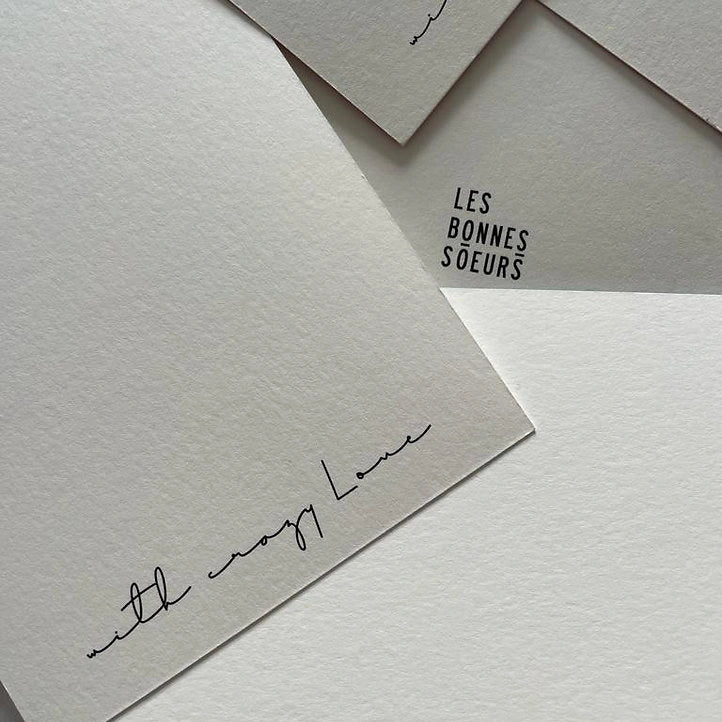 wi
LES
BONNES
SOEURS
with crazy Love